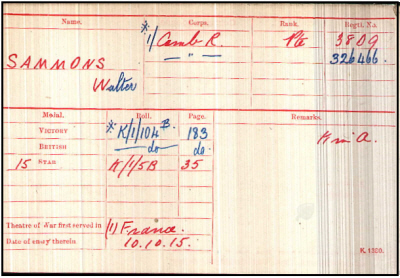 Name. Corps. Rank. Regtl. No.
*1/ Camb R. Pte 3809
SAMMONS — " — 326466.
Walter
Medal. Roll. Page. Remarks.
VICTORY *K/1/104B. 183
BRITISH do do. K in A.
15 STAR K/1/5B 35
Theatre of War first served in (1) France.
Date of entry therein 10.10.15.
K. 1380.